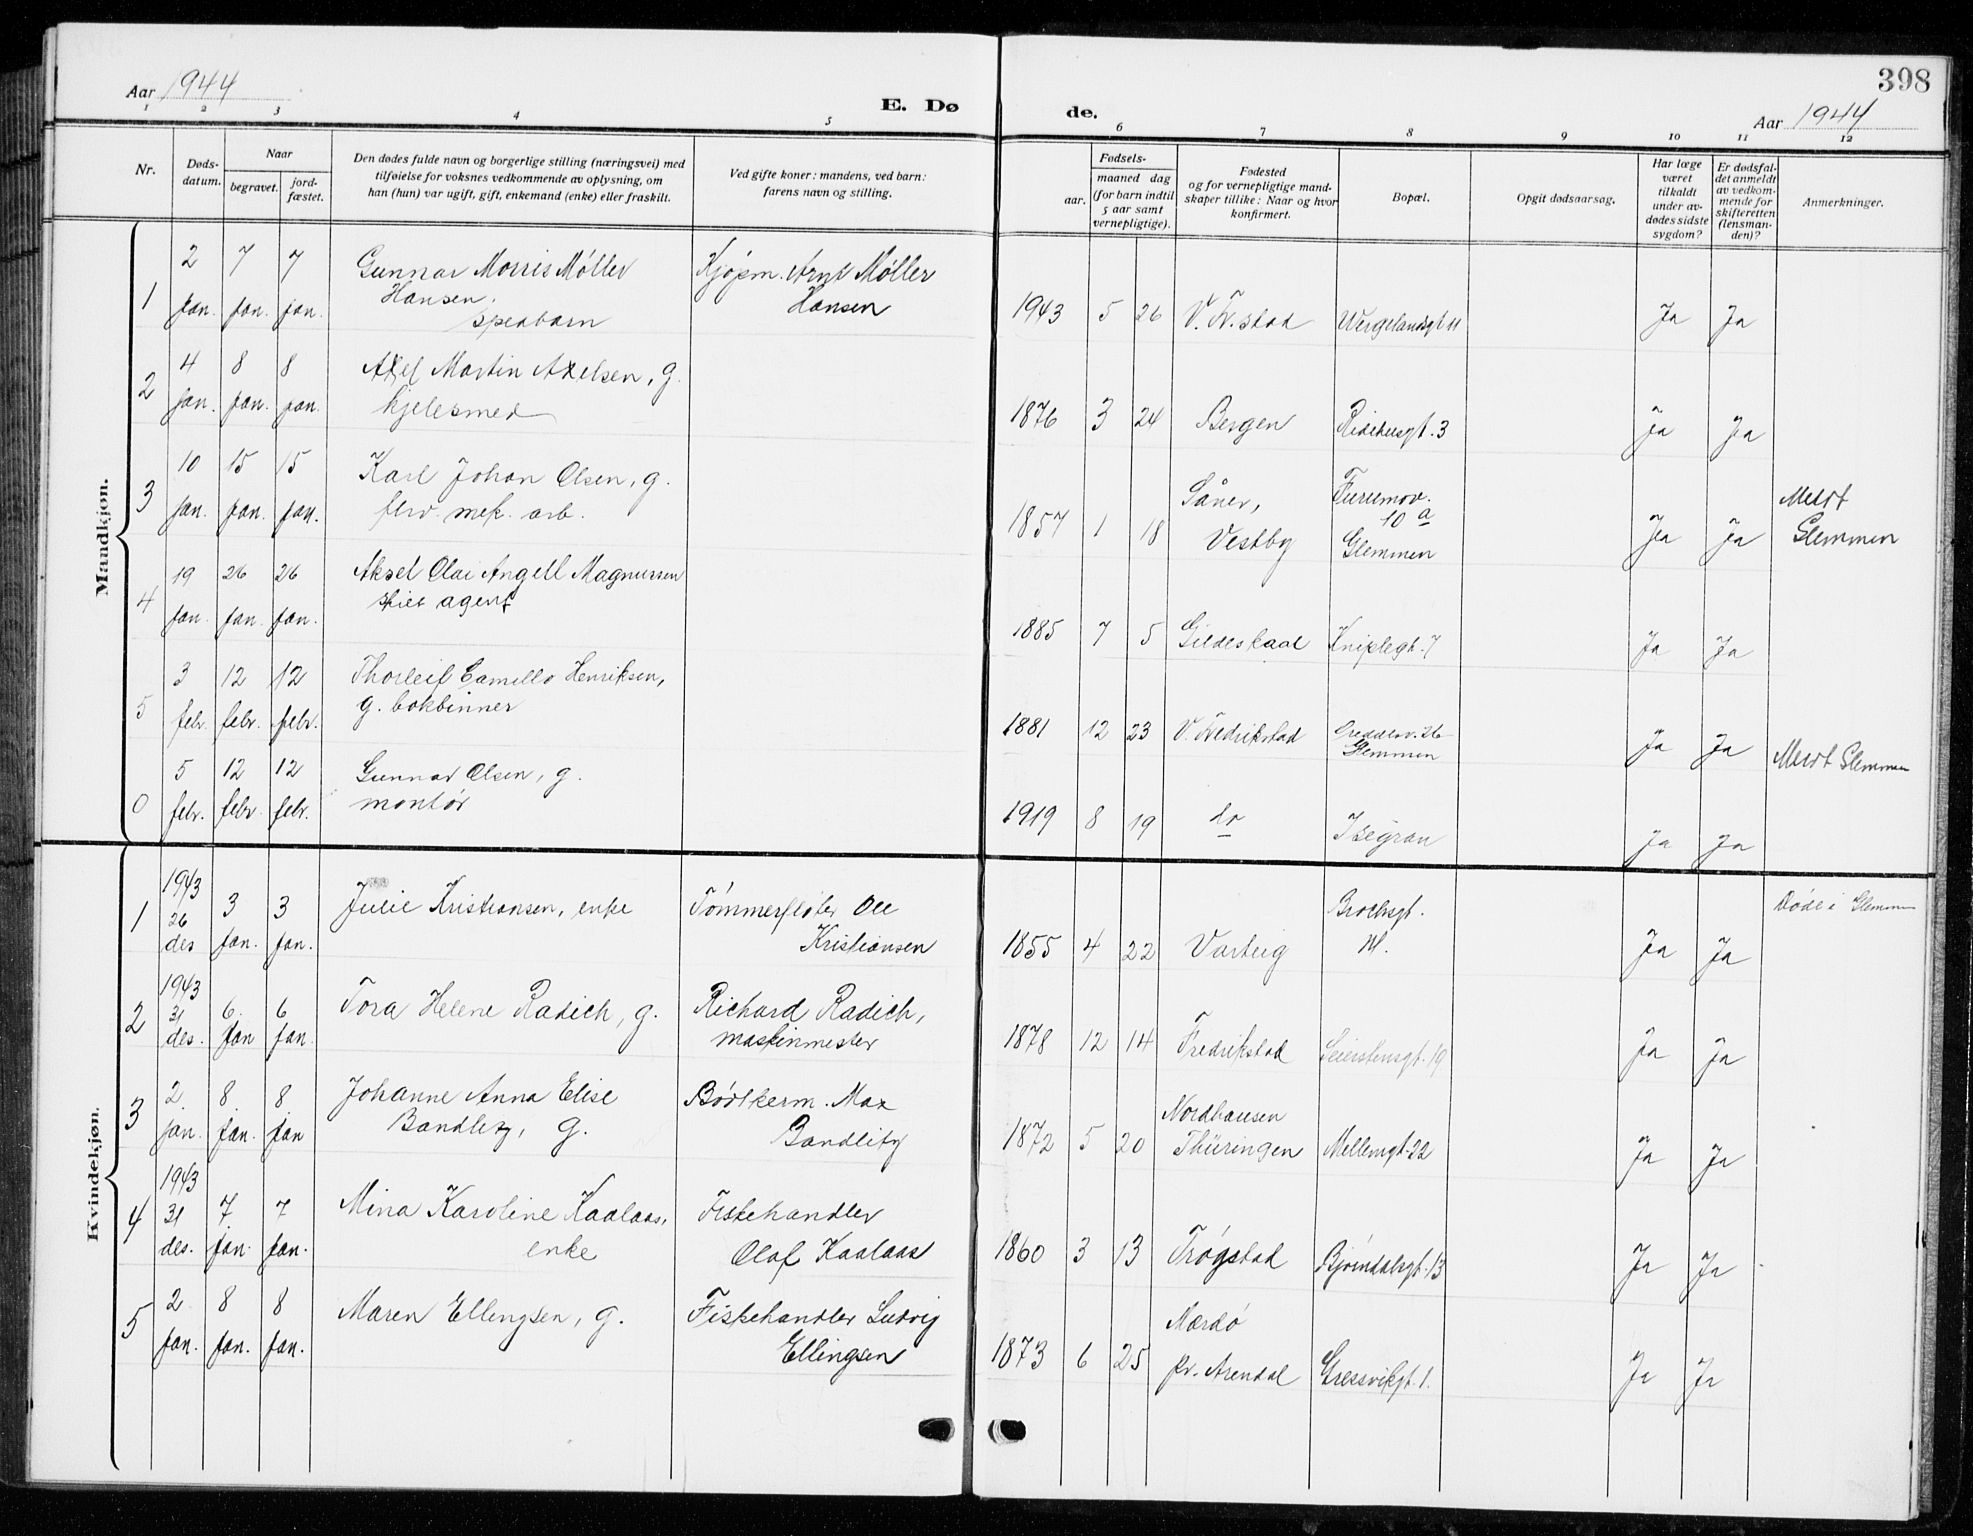 398
Aar 1944
E. Dø
de.
Aar 1944
1 2 3 4 5 6 7 8 9 10 11 12
Nr.
Døds-
datum.
Naar
begravet.
jord-
fæstet.
Den dødes fulde navn og borgerlige stilling (næringsvei) med
tilføielse for voksnes vedkommende av oplysning, om
han (hun) var ugift, gift, enkemand (enke) eller fraskilt.
Ved gifte koner: mandens, ved barn:
farens navn og stilling.
Fødsels-
aar.
maaned dag
(for barn indtil
5 aar samt
vernepligtige).
Fødested
og for vernepligtige mand-
skaper tillike: Naar og hvor
konfirmert.
Bopæl.
Opgit dødsaarsag.
Har læge
været
tilkaldt
under av-
dødes sidste
sygdom?
Er dødsfal-
det anmeldt
av vedkom-
mende for
skifteretten
(lensman-
den)?
Anmerkninger.
Mandkjøn.
1 2 jan. 7 jan. 7 jan. Gunnar Morris Møller
Hansen.
spebarn
Kjøpm. Arnt Møller
Hansen
1943 5 26 V. Fr.stad Wergelandsgt 11 Ja Ja
2 4 jan. 8 jan. 8 jan. Axel Martin Axelsen, g.
kjelesmed
1876 3 24 Bergen Ridehusgt. 3 Ja Ja
3 10 jan. 15 jan. 15 jan. Karl Johan Olsen, g.
mek. arb.
1857 1 18 Såner,
Vestby
Furumov.
10 a
Glemmen
Ja Ja
Meldt
Glemmen
4 19 jan. 26 jan. 26 jan. Aksel Olai Angell Magnussen
agent
1885 7 5 Gildeskaal Kniplegt. 7 Ja Ja
5 3 febr. 12 febr. 12 febr. Thorleif Camillo Henriksen,
g. bokbinner
1881 12 23 V. Fredrikstad
Glemmen
Ja Ja
Meldt Glemmen
5 febr. 12 febr. 12 febr. Gunnar Olsen, g.
montør
1919 8 19 do Isegran Ja Ja
Kvindekjøn.
1 1943 26 des 3 jan. 3 jan. Julie Kristiansen, enke
Tømmerfløter Ole
Kristiansen
1855 4 22 Varteig
Brochsgt.
Ja Ja
Døde i Glemmen
2 1943 31 des. 6 jan 6 jan. Tora Helene Radich, g.
Richard Radich,
maskinmester
1878 12 14 Fredrikstad Seierstensgt. 19 Ja Ja
3 2. jan. 8. jan. 8 jan Johanne Anna Elise
Bandlitz, g.
Bødkerm. Max
Bandlitz
1872 5 20 Nordhausen
Thüringen
Mellemgt. 22 Ja Ja
4 1943 31 des. 7. jan. 7 jan. Mina Karoline Kaalaas,
enke
Fiskehandler
Olaf Kaalaas
1860 3 13 Trøgstad Bjørndalsgt. 13 Ja Ja
5 2 jan. 8 jan. 8 jan. Maren Ellingsen, g.
Fiskehandler Ludvig
Ellingsen
1873 6 25 Mærdø
pr. Arendal
Gressvikgt. 1. Ja Ja